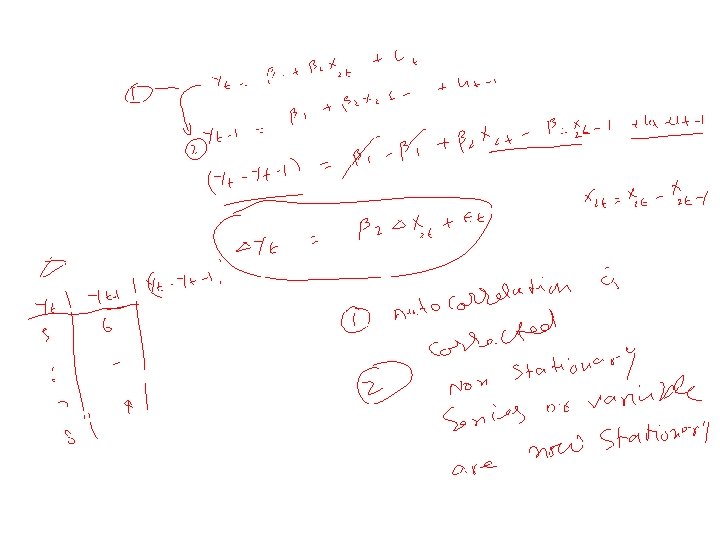 ① Yt = β1 + β2X2t + Ut
② Yt-1 = β1 + β2X2t-1 + Ut-1
(Yt - Yt-1) = β1 - β1 + β2X2t - β2X2t-1 + Ut-Ut-1
X2t = X2t - X2t-1
ΔYt = β2 ΔX2t + Et
Yt | Yt-1 | (Yt - Yt-1)
5 6
① Autocorrelation is
corrected
② Non Stationary
Series or variable
are now Stationary